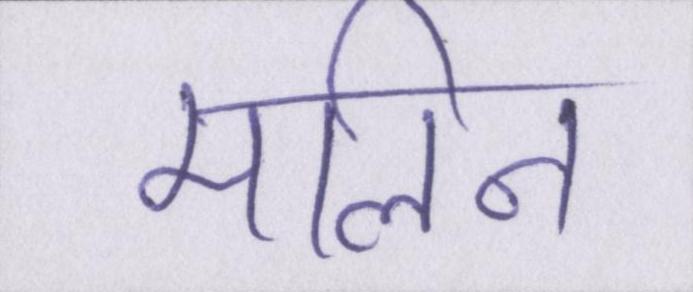 मलिन